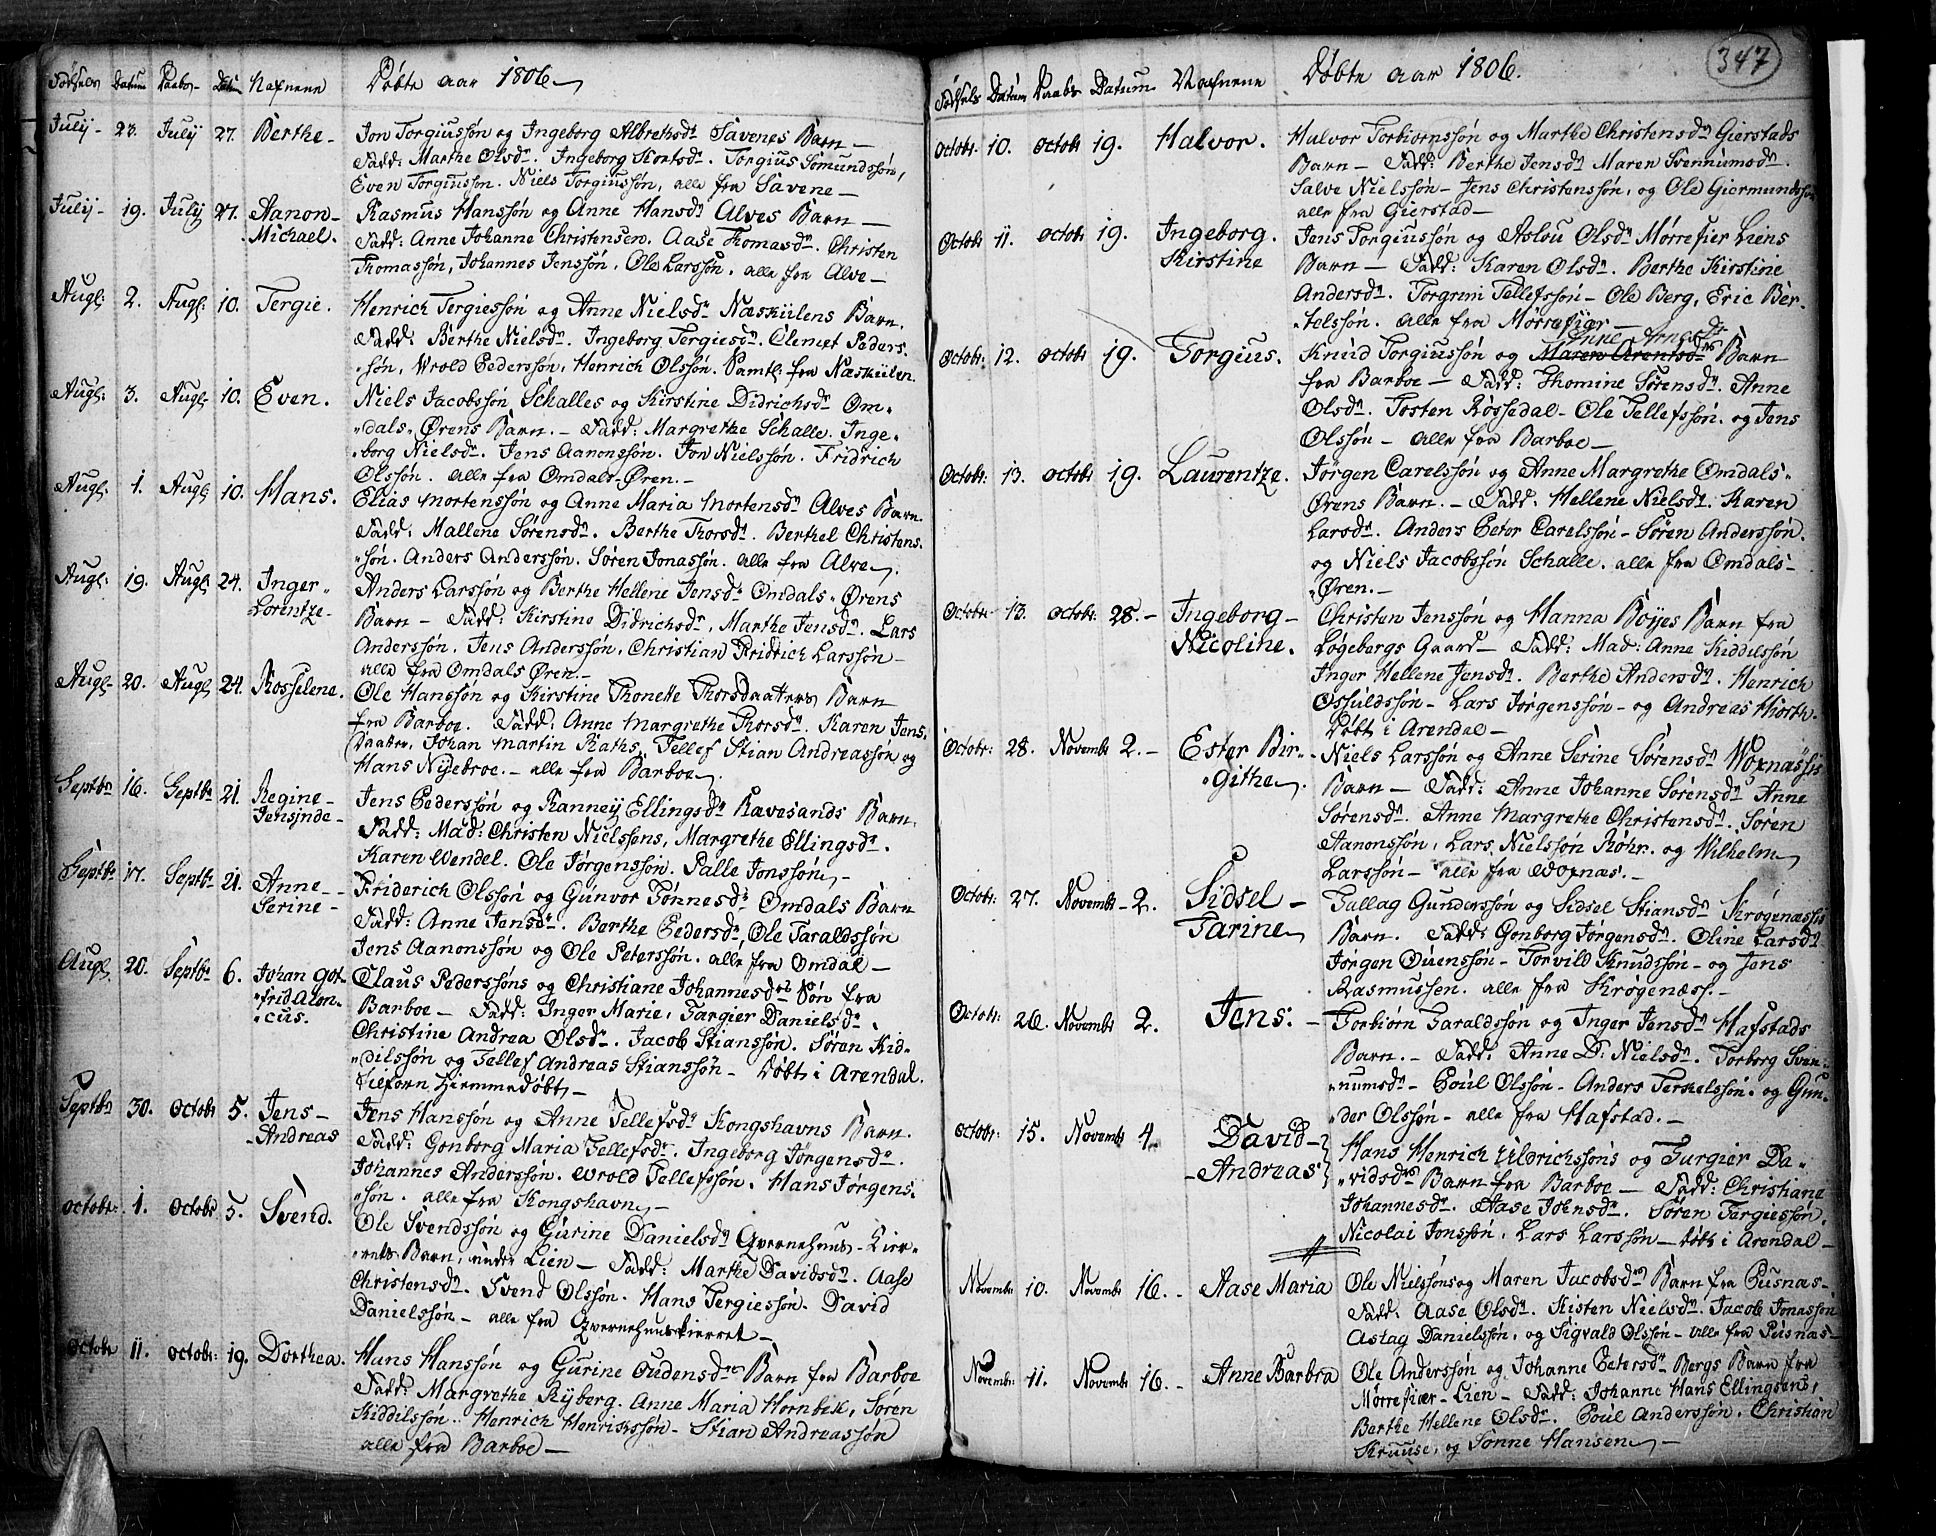 Fødsels Datum Daabs- Datum Nafnene Døbte aar 1806
July- 23. July 27. Berthe- Jon Torgiussøn og Ingeborg Albrethsdr Savenes Barn-
Fadd: Marthe Olsdr. Ingeborg Kortsdr. Torgius Somundssøn,
Even Torgiussøn. Niels Torgiussøn, alle fra Savene-
July- 19. July 27. Aanon- Rasmus Hanssøn og Anne Hansdr Alves Barn-
Michael. Fadd: Anne Johanne Christensen. Aase Thomasdr. Christen
Thomassøn, Johannes Jenssøn, Ole Larssøn. alle fra Alve-
Augl: 2. Augl: 10. Tergie. Henrich Tergiessøn og Anne Nielsdr Næskiilens Barn.
Fadd: Berthe Nielsdr. Ingeborg Tergiesdr. Clemet Peders-
søn, Wrold Pederssøn, Henrich Olssøn. Samtl: fra Næskiilen
Augl: 3. Augl 10. Even. Niels Jacobssøn Schalles og Kirstine Didrichsdr Om-
dals Ørens Barn. - Fadd: Margrethe Schalle. Inge-
borg Nielsdr. Jens Aanonssøn. Jon Nielssøn. Fridrich
Olssøn. alle fra Omdals-Øren.-
Augl: 1. Augl 10. Hans. Elias Mortenssøn og Anne Maria Mortensdr Alves Barn.
Fadd: Mallene Sørensdr. Berthe Thorsdr. Berthel Christens-
søn. Anders Anderssøn. Søren Jonassøn. alle fra Alve.
Augl: 19. Augl 24. Inger- Anders Larssøn og Berthe Hellene Jensdr Omdals Ørens
Lorentze- Barn - Fadd: Kirstine Didrichsdr, Marthe Jensdr. Lars
Anderssøn. Jens Anderssøn, Christian Fridrich Larssøn-
alle fra Omdals Øren.-
Augl- 20. Augl 24. Rosselene. Ole Hanssøn og Kirstine Thonette Thorsdaatters Barn
fra Barboe. Fadd: Anne Margrethe Thorsdr. Karen Jens
Daatter, Johan Martin Raths, Tellef Stian Andreassøn og
Hans Nyebroe.- alle fra Barboe.
Septbr 16. Septbr 21. Regine- Jens Pederssøn og Ranney Ellingsdr Ravesands Barn.
Jensinde- Fadd: Mad: Christen Nielssens, Margrethe Ellingsdr.
Karen Wendel. Ole Jørgenssøn. Palle Jonssøn-
Septbr 17. Septbr 21. Anne- Friderich Olssøn og Gunvor Tønnesdr Omdals Barn
Serine- Fadd: Anne Jensdr. Berthe Pedersdr, Ole Taraldssøn
Jens Aanonssøn og Ole Peterssøn. alle fra Omdal-
Augl 20. Septbr 6. Johan Got- Claus Pederssøns og Christiane Johannesdrs Søn fra
frid Barboe - Fadd: Inger Marie, Targier Danielsdr.
cus. Christine Andrea Olsdr. Jacob Stianssøn. Søren Kid-
dilssøn og Tellef Andreas Stianssøn - Døbt i Arendal.
tilforn Hiemmedøbt-
Septbr 30. Octobr 5. Jens- Jens Hanssøn og Anne Tellefsdr Kongshavns Barn.
-Andreas Fadd: Gonborg Maria Tellefsdr. Ingeborg Jørgensdr.
Johannes Anderssøn. Wrold Tellefssøn. Hans Jørgens-
søn. alle fra Kongshavn-
Octobr: 1. Octobr 5. Svend. Ole Svendssøn og Gurine Danielsdr Qvernehuus-Kier-
rets Barn, under Lien - Fadd: Marthe Davidsdr. Aase
Christensdr. Svend Olssøn. Hans Tergiessøn. David
Danielssøn - alle fra Qvernehuuskierret-
Octobr 11. Octobr: 19. Dorthea. Hans Hanssøn og Gurine Oudensdr Barn fra Barboe
Fadd: Margrethe Ryberg. Anne Maria Hornbek, Søren
Kiddilssøn. Henrich Henrichssøn - Stian Andreassøn
alle fra Barboe-
347
Fødsels Datum Daabs Datum Nafnene Døbte aar 1806.
Octobr. 10. Octobr 19. Halvor. Halvor Torbiornssøn og Marthe Christensdr Gierstads
Barn - Fadd: Berthe Jensdr Maren Svennumsdr.
Salve Nielssøn - Jens Christenssøn, og Ole Giermundssøn
alle fra Gierstad-
Octobr 11. Octobr 19. Ingeborg. Jens Torgiussøn og Aslou Olsdr Mørrefier Liens
Kirstine Barn - Fadd: Karen Olsdr. Berthe Kirstine
Andersdr. Torgrim Tellefssøn - Ole Berg, Eric Ber-
telssøn. alle fra Mørrefiær-
Anne Arnesdr
Octobr: 12. Octobr 19. Torgius. Knud Torgiussøn og Maren Arentsdrs Barn
fra Barboe - Fadd: Thomine Sørensdr. Anne
Olsdr. Tosten Røssedal - Ole Tellefssøn. og Jens
Olssøn - alle fra Barboe-
Octobr: 13. Octobr 19. Laurentze. Jørgen Carelssøn og Anne Margrethe Omdals-
Ørens Barn. - Fadd: Hellene Nielsdr. Karen
Larsdr. Anders Peter Carelssøn - Søren Anderssøn.
og Niels Jacobssøn Schalle. alle fra Omdals-
Øren.-
Octobr- 13. Octobr 28.- Ingeborg- Christen Jenssøn og Hanna Boyes Barn fra
Nicoline. Løgebergs Gaard - Fadd: Mad: Anne Kiddilssøn
Inger Hellene Jensdr. Berthe Andersdr. Henrich
Osfuldssøn - Lars Jørgenssøn - og Andreas Hiorth.
Døbt i Arendal-
Octobr: 28. Novembr 2.- Ester Bir- Niels Larssøn og Anne Serine Sørensdr Woxnæsses
githe. Barn - Fadd: Anne Johanne Sørensdr Anne
Sørensdr. Anne Margrethe Christensdr. Søren
Aanonssøn, Lars Nielssøn Rohr. og Wilhelm
Larssøn - alle fra Woxnæs.-
Octobr: 27. Novembr-2. Sidsel- Tallag Gunderssøn og Sidsel Stiansdr Krøgenæssis
Tarine Barn. Fadd: Gonborg Jørgensdr. Oline Larsdr
Jørgen Ouenssøn - Torvild Knudssøn - og Jens
Rasmussen. alle fra Krøgenæss.-
Octobr: 26. Novembr 2. Jens.- Torbiørn Taraldssøn og Inger Jensdr Hafstads
Barn.- Fadd: Anne D: Nielsdr. Torborg Sven-
numsdr - Poul Olssøn - Anders Terkelssøn. og Gun-
der Olssøn - alle fra Hafstad.-
Octobr: 15. Novembr 4. David- Hans Henrich Uldrichssøns og Turgier Da-
-Andreas vidsdrs Barn fra Barboe - Fadd: Christiane
Johannesdr. Aase Johnsdr. Søren Targiessøn.
Nicolai Jonssøn, Lars Larssøn - døbt i Arendal-
Novembr 10. Novembr 16.- Aase Maria Ole Nielssøns og Maren Jacobsdrs Barn fra Pusnas-
Fadd: Aase Olsdr. Kisten Nielsdr. Jacob Jonassøn
Aslag Danielssøn, og Sigvald Olssøn - alle fra Pusnas-
Novembr: 11. Novembr 16.- Anne Barbra Ole Anderssøn og Johanne Petersdr Bergs Barn fra
Mørrefiær-Lien - Fadd: Johanne Hans Ellingsens,
Berthe Hellene Olsdr. Poul Anderssøn. Christian
Kruuse, og Sønne Hansen-